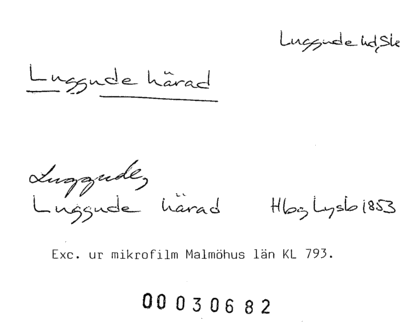 Luggude hd, Sk
Luggude härad
Luggude,
Luggude härad Hbg Lyslb 1853
Exc. ur mikrofilm Malmöhus län KL 793.
00 030682